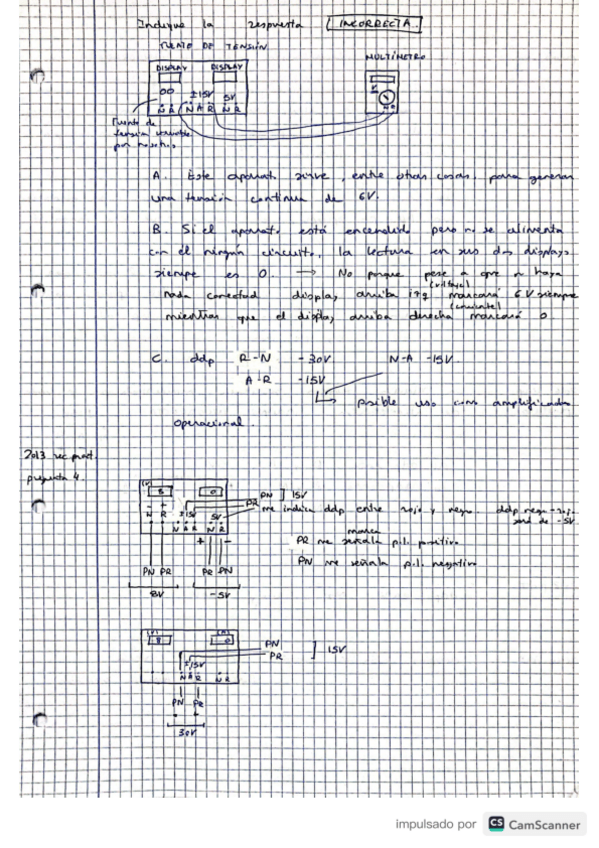 Indique la respuesta INCORRECTA.
FUENTE DE TENSIÓN
MULTÍMETRO
DISPLAY DISPLAY
±15V 5V
N R N A R N R
Fuente de
tensión variable
por nosotros
A. Este aparato sirve, entre otras cosas, para generar
una tensión continua de 6V.
B. Si el aparato está encendido pero no se alimenta
con él ningún circuito, la lectura en sus dos displays
siempre es 0. → No porque pese a que no haya
(voltaje)
nada conectado display arriba izq marcará 6V siempre
(corriente)
mientras que el display arriba derecha marcará 0
C. ddp R-N -30V N-A -15V.
A-R -15V
posible uso como amplificador
operacional.
2013 rec pract.
pregunta 4.
(V)
8 0
- +
N R ±15V 5V
N A R N R
PN ] 15V
PR
me indica ddp entre rojo y negro ddp negro-rojo
será de -5V
+ -
marca
PR me señala pol. positivo
PN me señala pol. negativo
PN PR PR PN
8V -5V
(V) (A)
8 0
±15V
N A R N R
PN
PR ] 15V
PN PR
- +
30V
impulsado por CS CamScanner